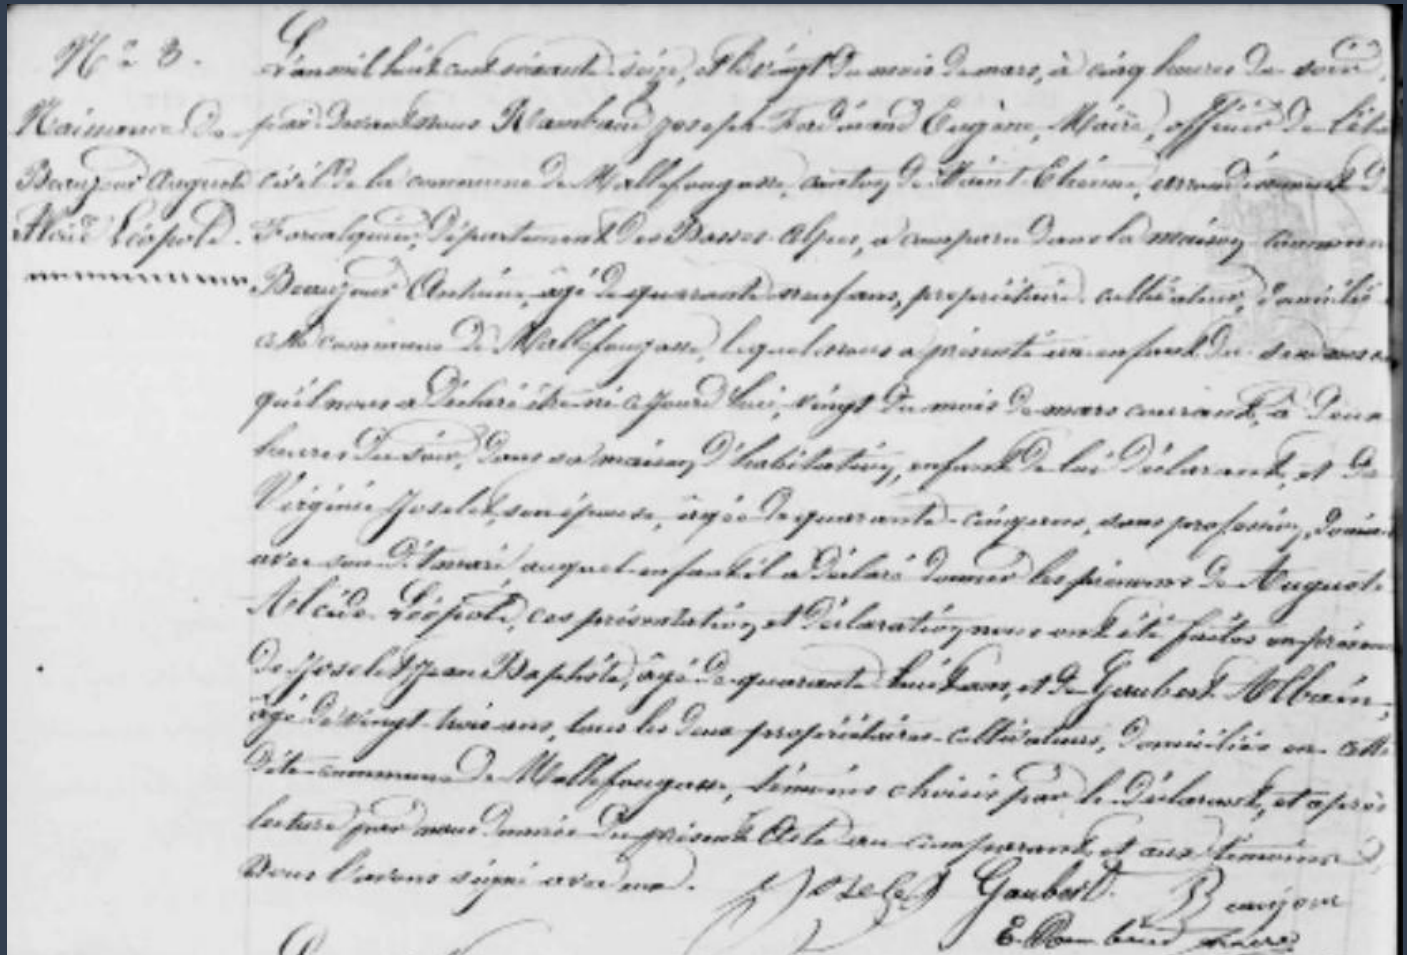 N° 3.
Naissance de
Beaujour Auguste
Alcide Léopold.
L'an mil huit cent soixante-seize, et le vingt du mois de mars, à cinq heures du soir,
par devant nous Rambaud Joseph Ferdinand Eugène, Maire, officier de l'état
civil de la commune de Mallefougasse, canton de Saint-Etienne, arrondissement de
Forcalquier, département des Basses-Alpes, a comparu dans la maison commune
Beaujour Antoine, âgé de quarante-neuf ans, propriétaire cultivateur, domicilié
commune de Mallefougasse, lequel nous a présenté un enfant du sexe
qu'il nous a déclaré être né ce jourd'hui, vingt du mois de mars courant, à deux
heures du soir, dans sa maison d'habitation, enfant de lui déclarant, et de
Virginie Joselet, son épouse, âgée de quarante-cinq ans, sans profession,
avec son dit mari, auquel enfant il a déclaré donner les prénoms de Auguste
Alcide Léopold, ces présentation et déclaration nous ont été faites en présence
de Joselet Jean Baptiste, âgé de quarante huit ans, et de Gaubert Albain,
âgé de vingt-trois ans, tous les deux propriétaires-cultivateurs, domiciliés en cette
dite commune de Mallefougasse, témoins choisis par le déclarant, et après
lecture par nous donnée du présent Acte au comparant et aux témoins
nous l'avons signé avec eux.
Joselet Gaubert Beaujour
E. Rambaud maire